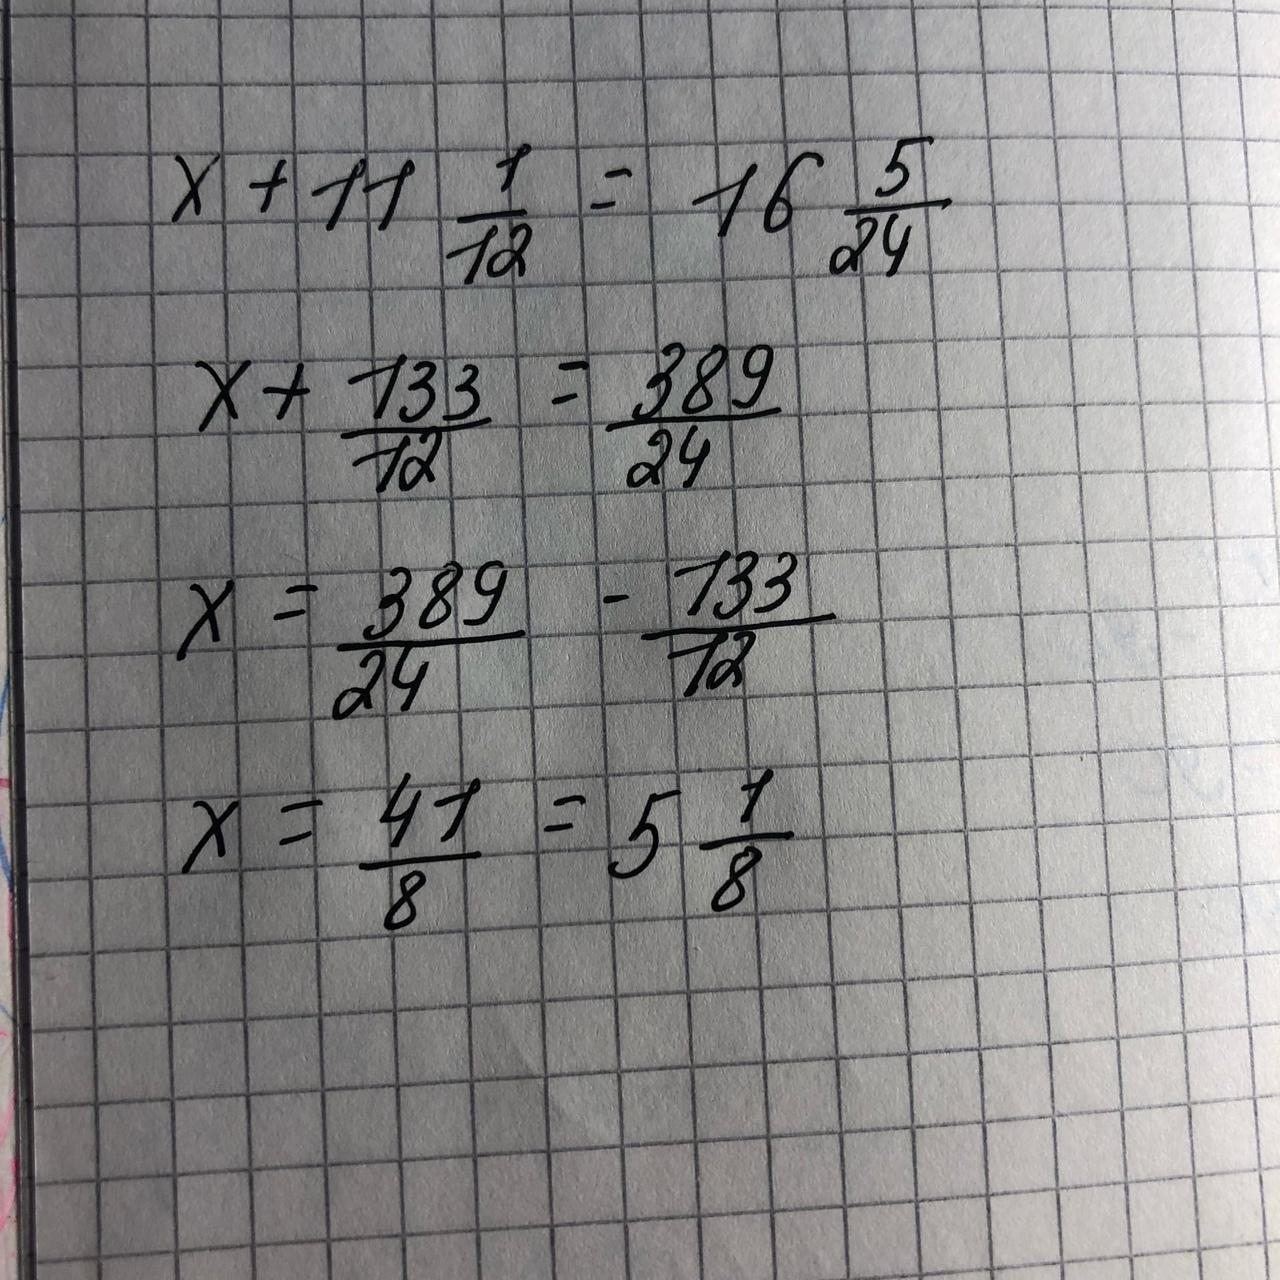 x + 11 1/12 = 16 5/24
x + 133/12 = 389/24
x = 389/24 - 133/12
x = 41/8 = 5 1/8